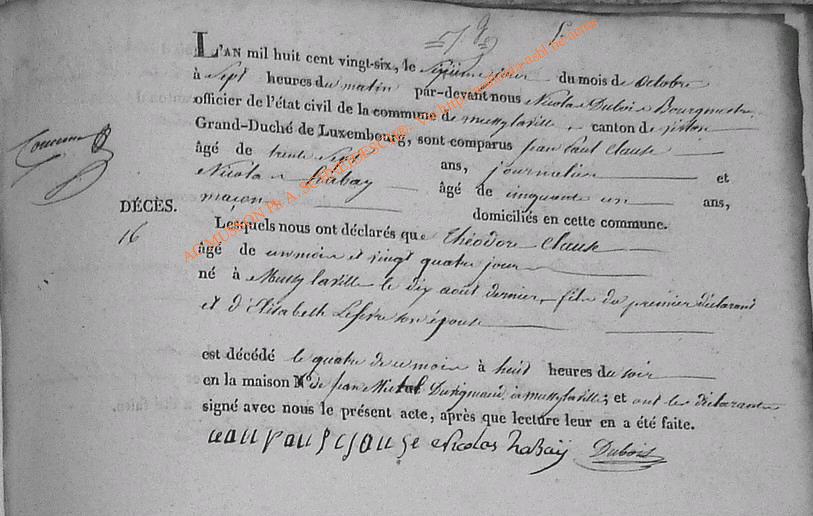 L'AN mil huit cent vingt-six, le sixieme jour du mois de octobre
à sept heures du matin par-devant nous Nicolas Dubois Bourgmestre
officier de l'état civil de la commune de mussylaville, canton de virton
Grand-Duché de Luxembourg, sont comparus jean Paul Clause
âgé de trente sept ans, journalier et
Nicolas habay âgé de cinquante un ans,
maçon domiciliés en cette commune.
DÉCÈS.
16
Lesquels nous ont déclarés que Théodore Clause
âgé de un moi et vingt quatre jour
né à Mussylaville le dix août dernier, fils du premier déclarant
et d'Elisabeth Lefevre son épouse
est décédé le quatre de ce mois à huit heures du soir
en la maison N° de jean Michel à mussylaville; et ont les déclarants
signé avec nous le présent acte, après que lecture leur en a été faite.
jean paul clause nicolas habaÿ Dubois